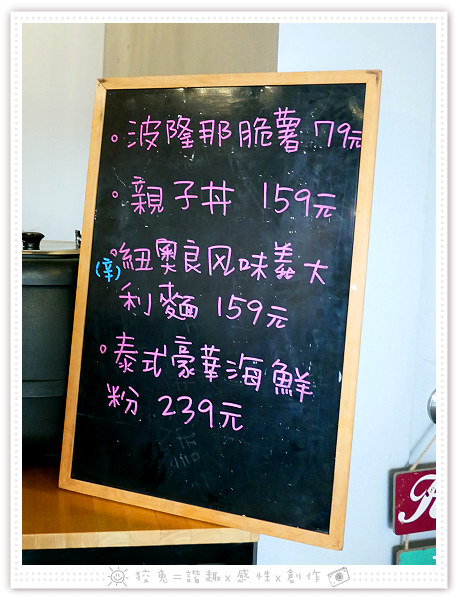 。波隆那脆薯 79元
。親子丼 159元
。紐奧良风味義大
(辛)
利麵 159元
。泰式豪華海鮮
粉 239元
狡兔=諧趣x感性x創作